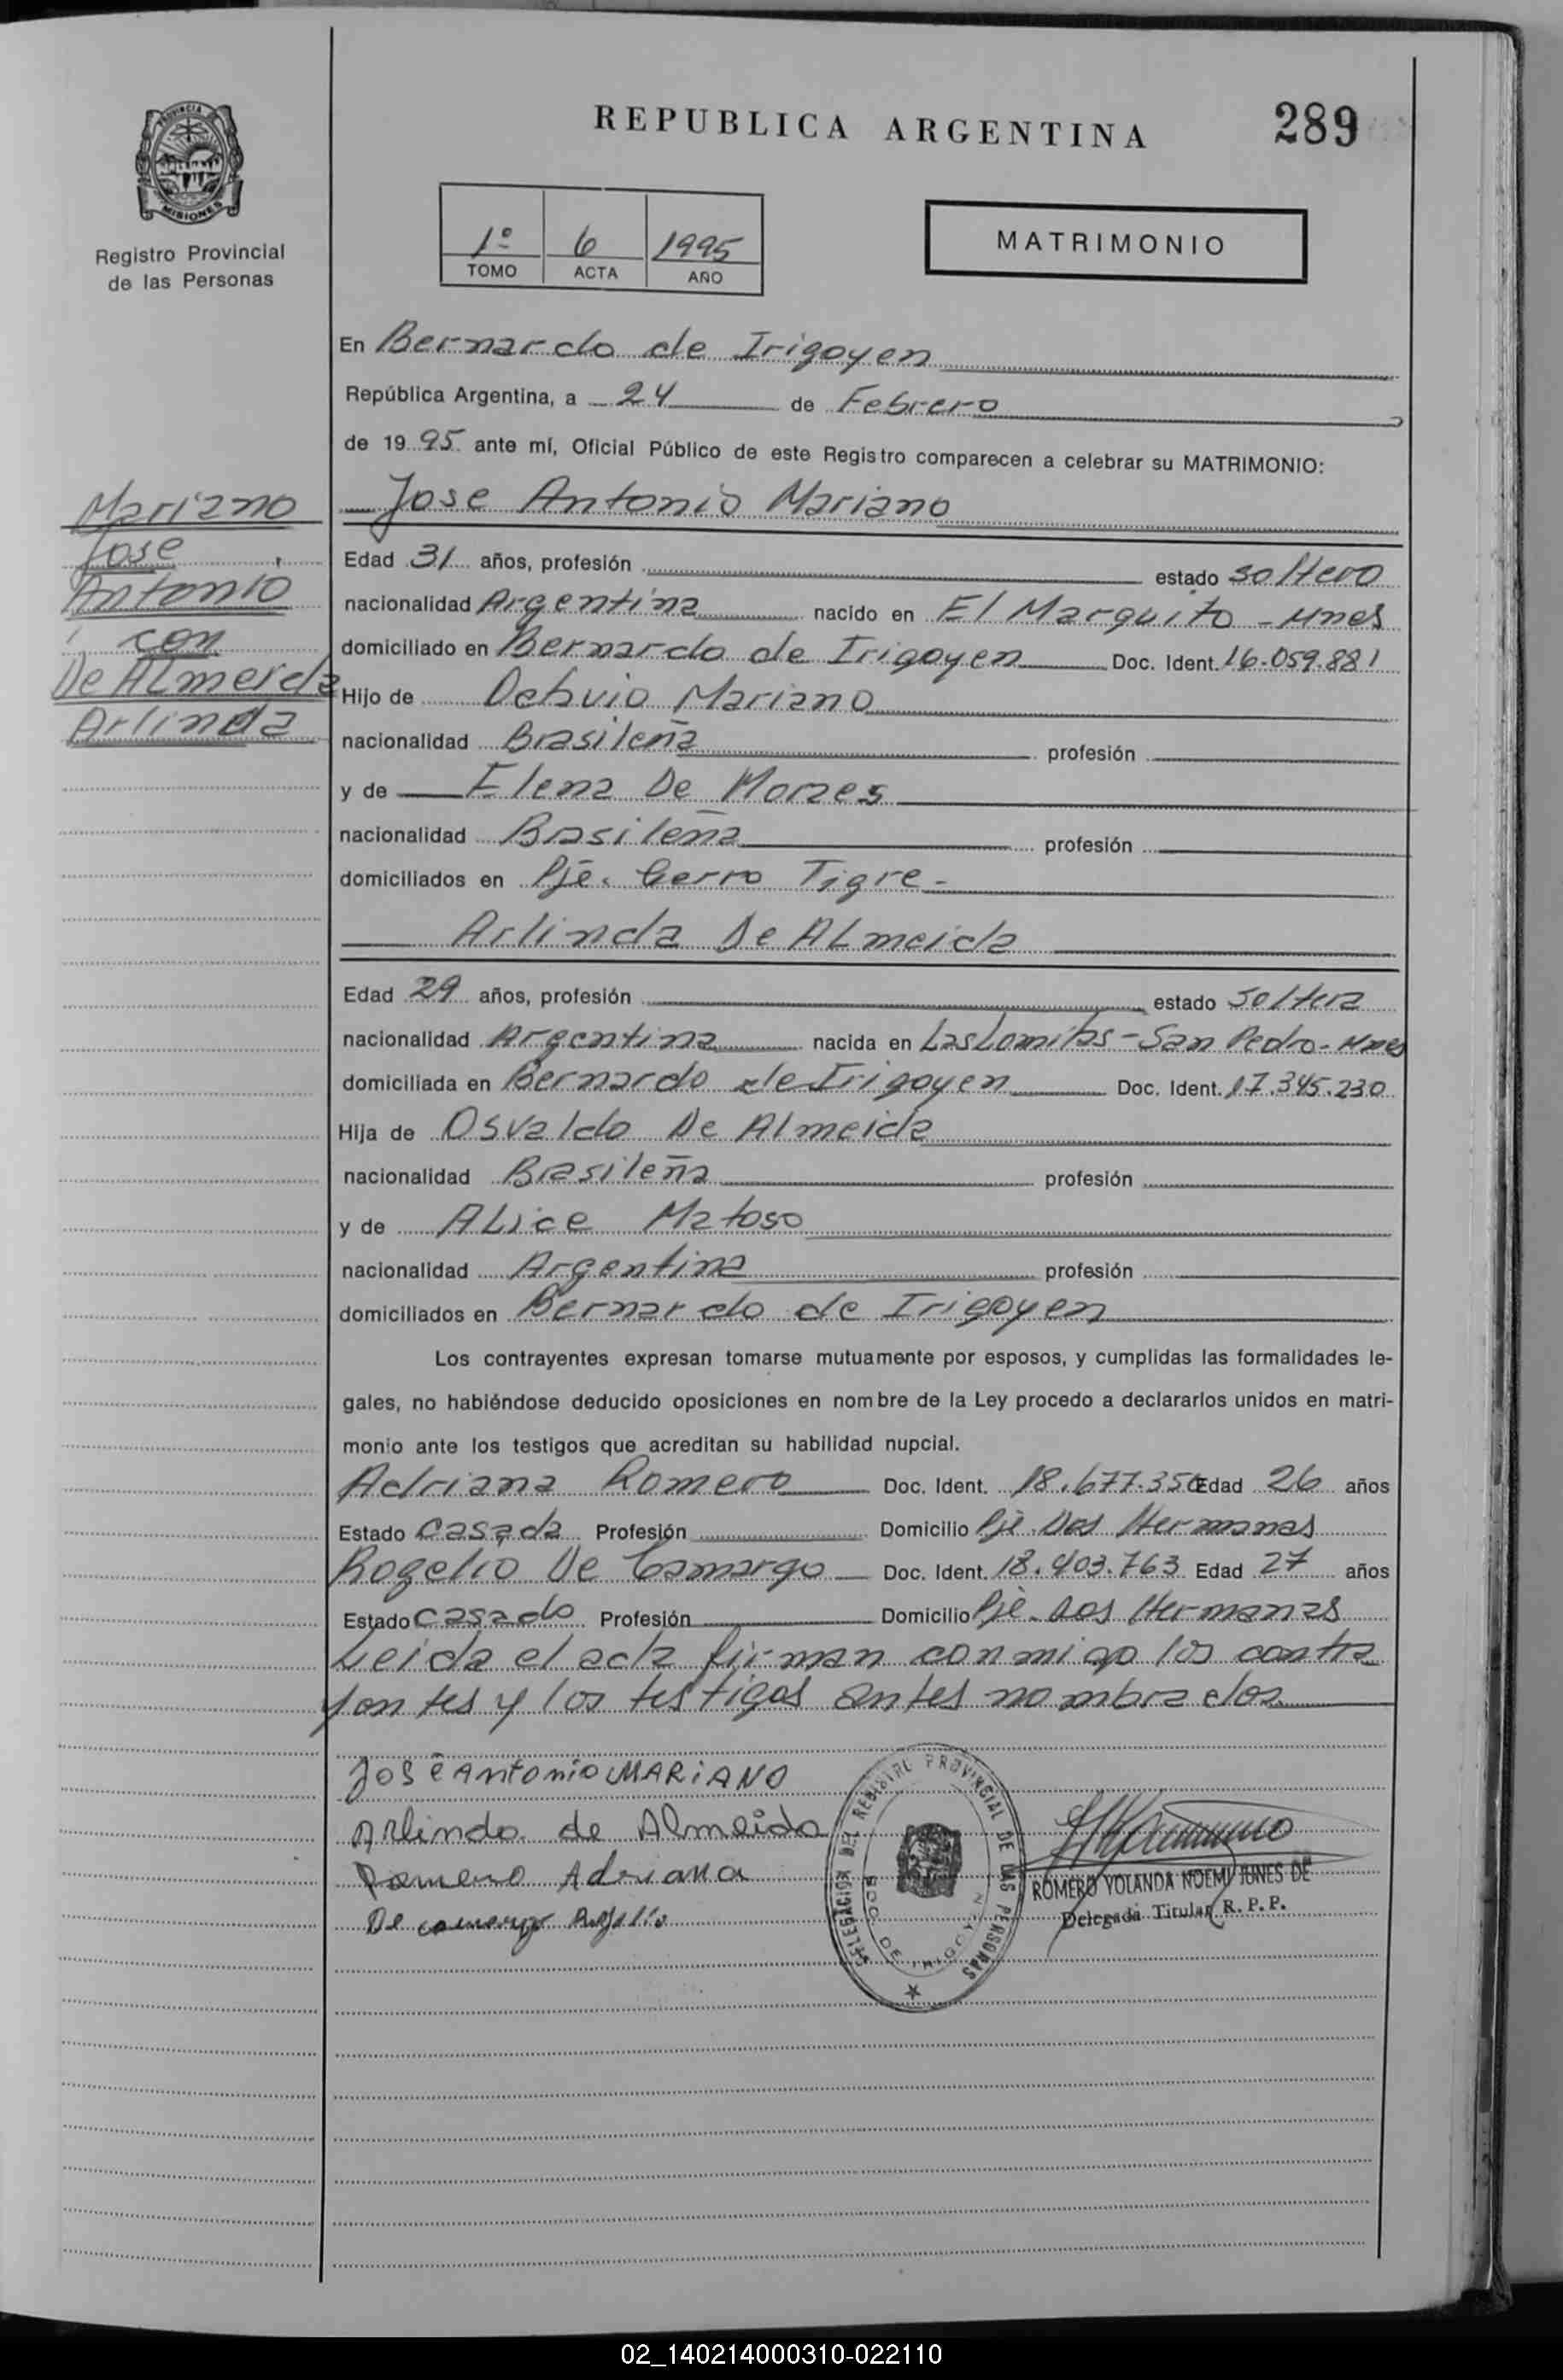 REPUBLICA ARGENTINA
289
PROVINCIA
MISIONES
Registro Provincial
de las Personas
1º 6 1995
TOMO ACTA AÑO
MATRIMONIO
En Bernardo de Irigoyen
República Argentina, a 24 de Febrero
de 1995 ante mí, Oficial Público de este Registro comparecen a celebrar su MATRIMONIO:
Mariano
Jose
Antonio
con
De ALmeida
Arlinda
Jose Antonio Mariano
Edad 31 años, profesión estado soltero
nacionalidad Argentina nacido en El Marquito - Mnes
domiciliado en Bernardo de Irigoyen Doc. Ident. 16.059.881
Hijo de Octavio Mariano
nacionalidad Brasileña profesión
y de Elena De Moraes
nacionalidad Brasileña profesión
domiciliados en Pje. Cerro Tigre -
Arlinda De ALmeida
Edad 29 años, profesión estado soltera
nacionalidad Argentina nacida en Las Lomitas - San Pedro - Mnes
domiciliada en Bernardo de Irigoyen Doc. Ident. 17.345.230
Hija de Osvaldo De Almeida
nacionalidad Brasileña profesión
y de ALice Matoso
nacionalidad Argentina profesión
domiciliados en Bernardo de Irigoyen
Los contrayentes expresan tomarse mutuamente por esposos, y cumplidas las formalidades le-
gales, no habiéndose deducido oposiciones en nombre de la Ley procedo a declararlos unidos en matri-
monio ante los testigos que acreditan su habilidad nupcial.
Adriana Romero Doc. Ident. 18.677.350 Edad 26 años
Estado casada Profesión Domicilio Pje. Dos Hermanas
Rogelio De Camargo Doc. Ident. 18.403.763 Edad 27 años
Estado casado Profesión Domicilio Pje. Dos Hermanas
Leida el acta firman conmigo los contra
yentes y los testigos antes nombrados
José Antonio MARiANO
Arlinda de Almeida
Romero Adriana
De camargo Rogelio
DELEGACION DEL REGISTRO PROVINCIAL DE LAS PERSONAS
BDO. DE IRIGOYEN
ROMERO YOLANDA NOEMI JUNES DE
Delegada Titular R. P. P.
02_140214000310-022110